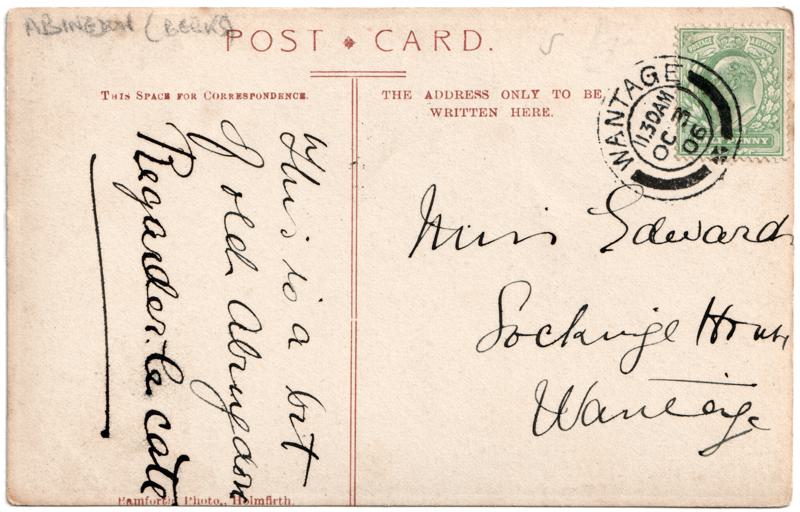 ABINGDON (BERKS)
POST CARD.
THIS SPACE FOR CORRESPONDENCE.
THE ADDRESS ONLY TO BE
WRITTEN HERE.
This is a bit
of old Abingdon
Regardez le coté
Miss Edwards
Lockinge House
Wantage
WANTAGE
11.30AM
OC 3
06
POSTAGE
PENNY
Bamforth Photo., Holmfirth.